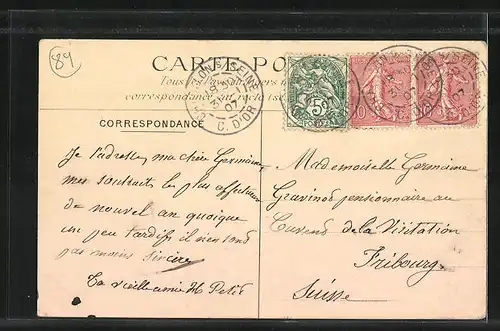 89
CARTE PO
Tous
correspondance
CHATILLON S SEINE
07
C. D'OR
5c
10
10
CORRESPONDANCE
Je t'adresse, ma chère Germaine,
mes souhaits les plus affectueux
de nouvel an quoique
un peu tardifs il n'en sont
pas moins sincères
Ta vieille amie M Petit
Mademoiselle Germaine
pensionnaire au
Couvent de la Visitation
Fribourg
Suisse